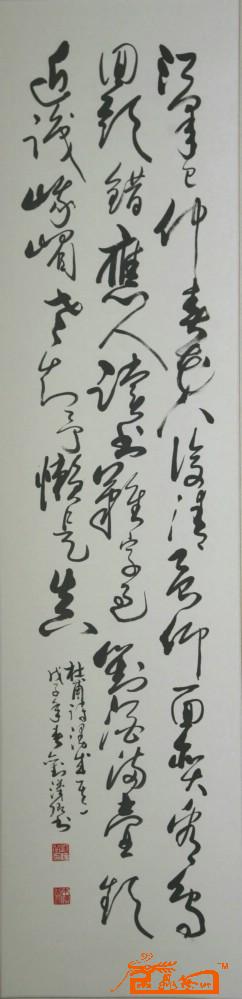 江皋已仲春花下復清晨仰面貪看鳥
回頭錯應人讀書難字過對酒滿壺頻
近識峨嵋老知予懶是真
杜甫詩漫成其一
戊子年春劉書